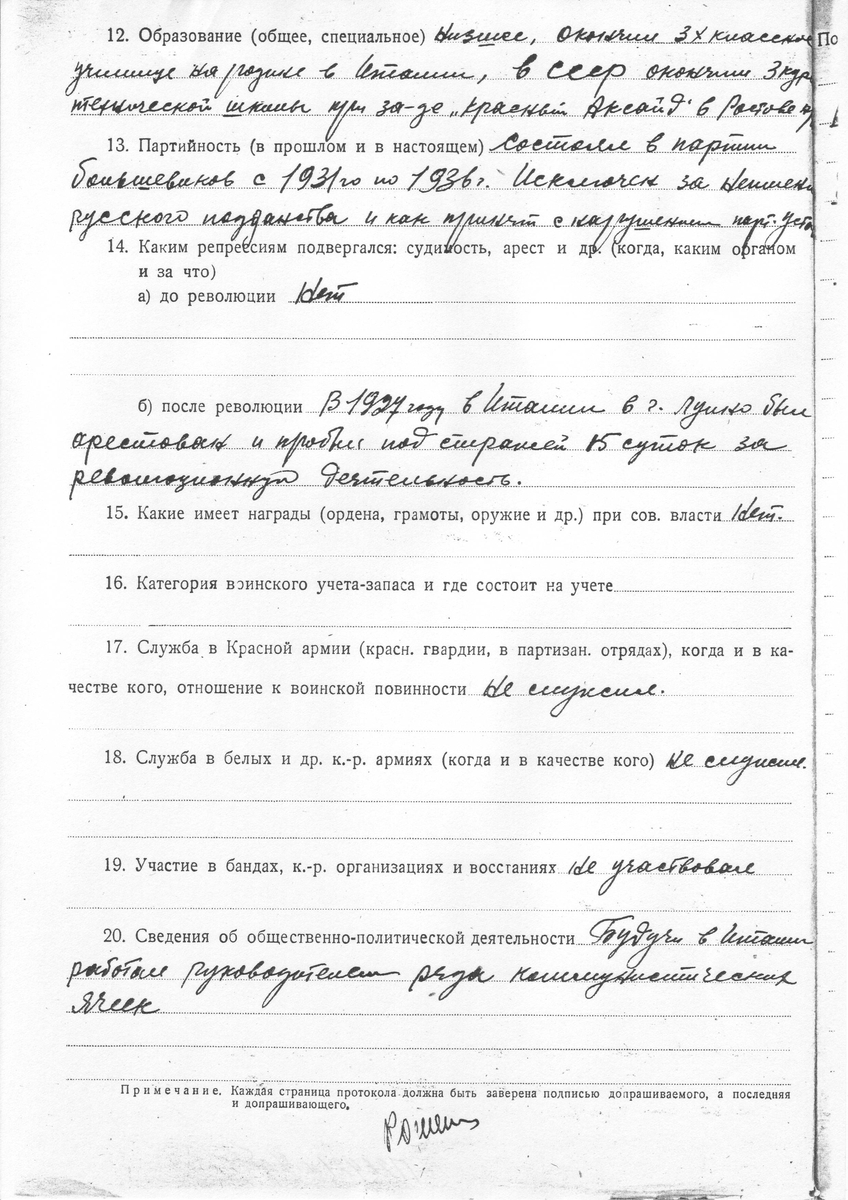 12. Образование (общее, специальное) Низшее, окончил 3х классное
По
училище на родине в Италии, в СССР окончил 3 кур
технической школы при за-де „Красный Аксай" в Ростове н/
13. Партийность (в прошлом и в настоящем) Состоял в партии
большевиков с 1931 го по 1936 г. Исключен за неимен
русского подданства и как принят с нарушением парт. уста
14. Каким репрессиям подвергался: судимость, арест и др. (когда, каким органом
и за что)
а) до революции Нет
б) после революции В 1927 году в Италии в г. был
арестован и пробыл под стражей 15 суток за
революционную деятельность.
15. Какие имеет награды (ордена, грамоты, оружие и др.) при сов. власти Нет.
16. Категория воинского учета-запаса и где состоит на учете
17. Служба в Красной армии (красн. гвардии, в партизан. отрядах), когда и в ка-
честве кого, отношение к воинской повинности Не служил.
18. Служба в белых и др. к.-р. армиях (когда и в качестве кого) Не служил.
19. Участие в бандах, к.-р. организациях и восстаниях Не участвовал
20. Сведения об общественно-политической деятельности Будучи в Италии
работал руководителем ряда коммунистических
ячеек
Примечание. Каждая страница протокола должна быть заверена подписью допрашиваемого, а последняя
и допрашивающего.